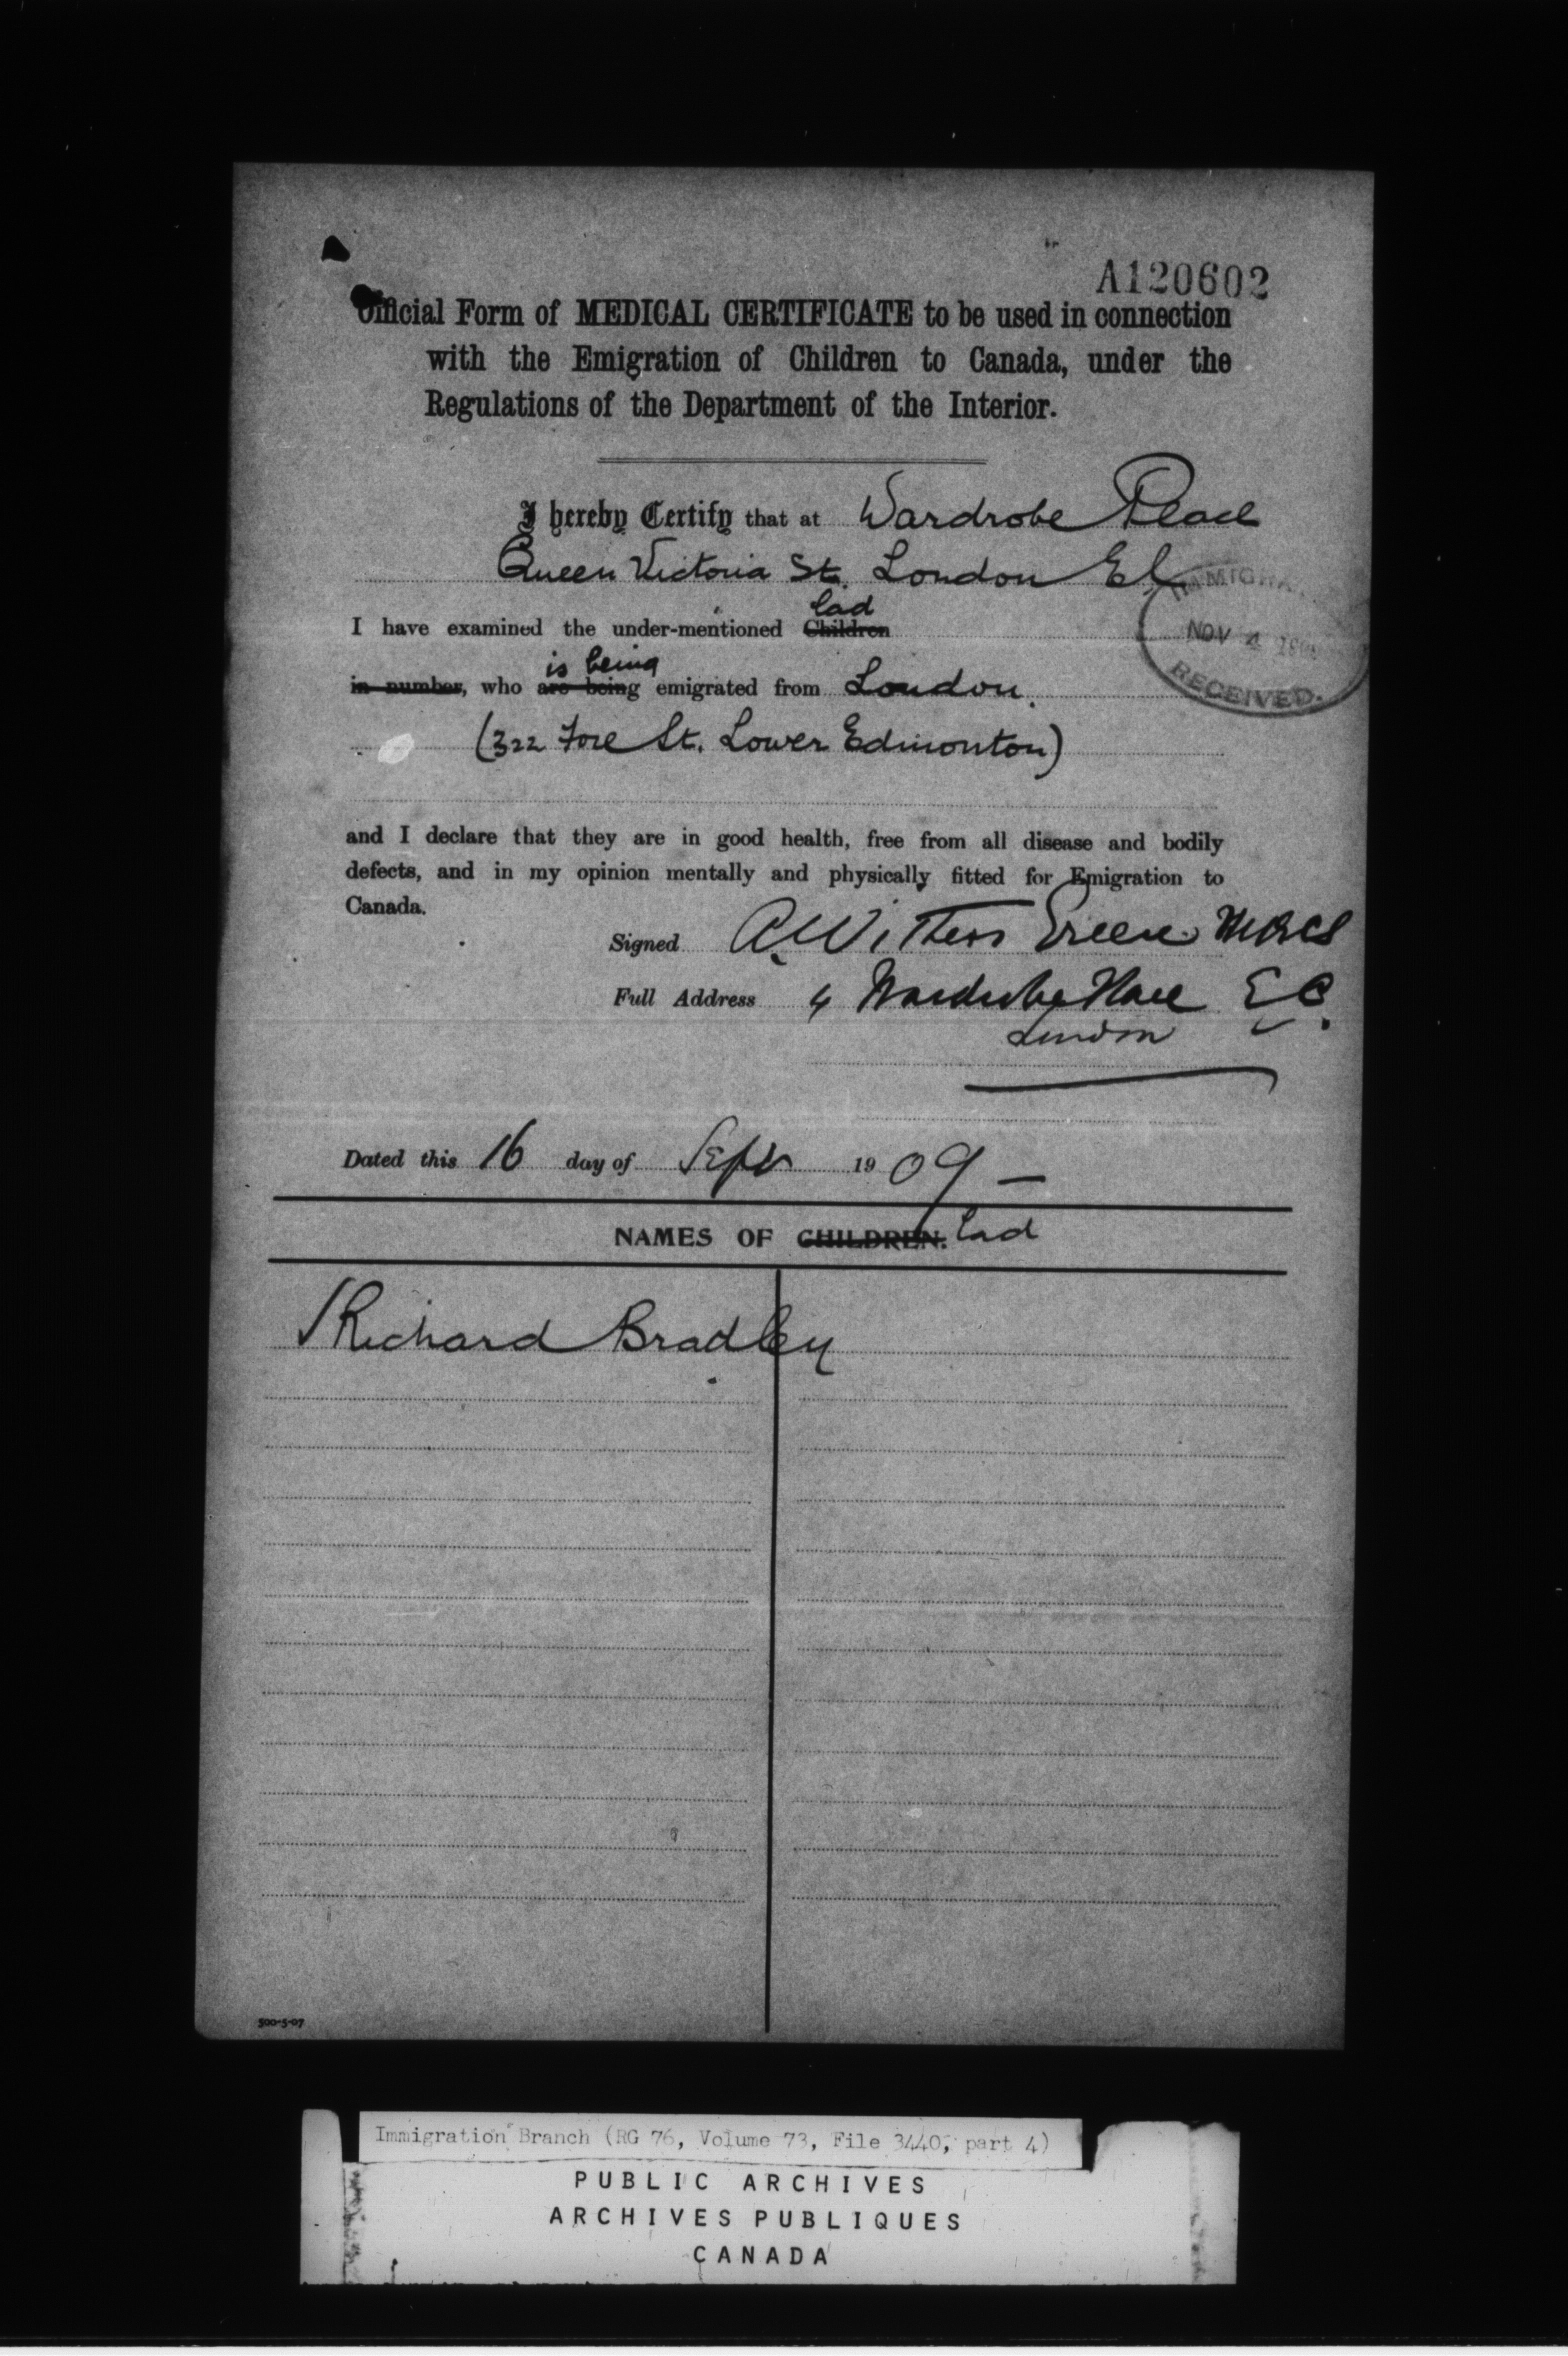 A120602
Official Form of MEDICAL CERTIFICATE to be used in connection
with the Emigration of Children to Canada, under the
Regulations of the Department of the Interior.
I hereby Certify that at Wardrobe Place
Queen Victoria St. London EC
lad
I have examined the under-mentioned Children
is being
in number, who are being emigrated from London.
(322 Fore St. Lower Edmonton)
IMMIGRA
NOV 4
RECEIVED.
and I declare that they are in good health, free from all disease and bodily
defects, and in my opinion mentally and physically fitted for Emigration to
Canada.
Signed A. Withers Green MRCS
Full Address 4 Wardrobe Place E C.
London
Dated this 16 day of Sept 1909 —
NAMES OF CHILDREN. Lad
Richard Bradley
500-5-07
Immigration Branch (RG 76, Volume 73, File 3440, part 4)
PUBLIC ARCHIVES
ARCHIVES PUBLIQUES
CANADA